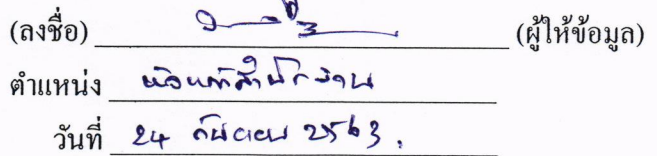 (ลงชื่อ) (ผู้ให้ข้อมูล)
ตำแหน่ง หัวหน้าสำนักงาน
วันที่ 24 กันยายน 2563.